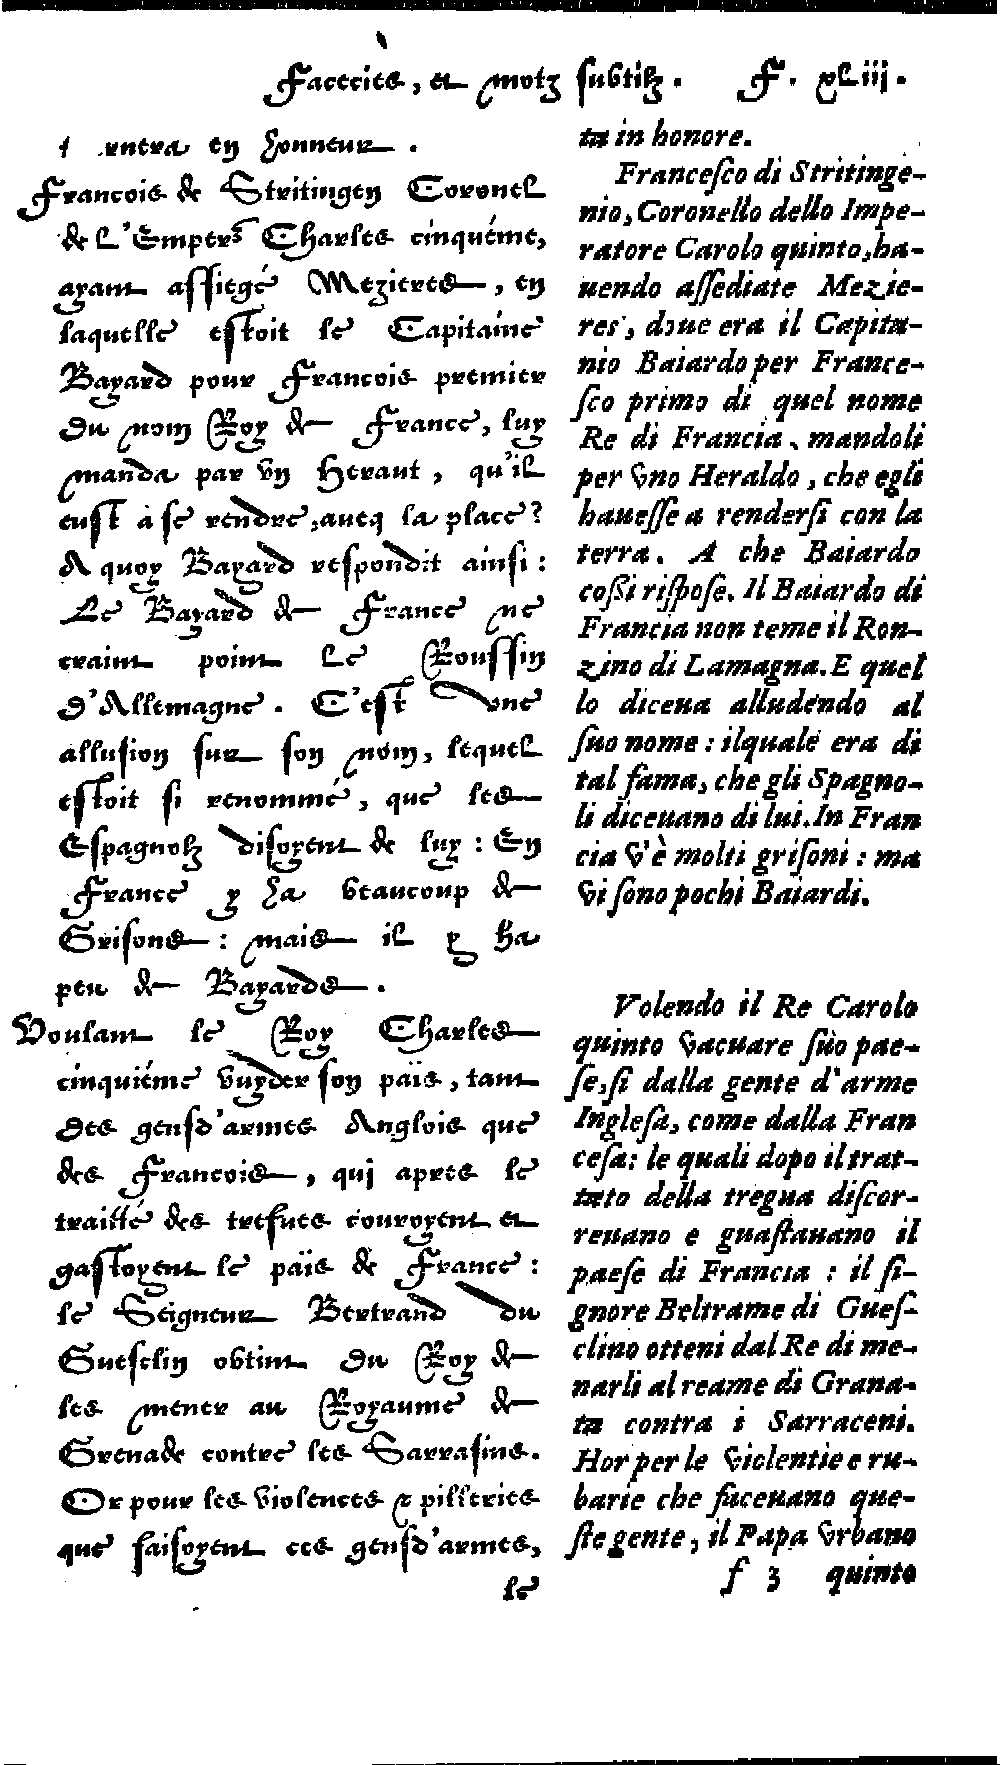 Facecies, et motz subtilz. F. xliij.
en honneur.
Francois de Stritingen Coronel
de l'Emper^r Charles cinquiéme,
ayant assiegé Mezieres, en
laquelle estoit le Capitaine
Bayard pour Francois premier
du nom Roy de France, luy
manda par vn Heraut, qu'il
eust à se rendre, aueq la place?
A quoy Bayard respondit ainsi:
Le Bayard de France ne
craint point le Roussin
d'Allemagne. C'est donc
allusion sur son nom, lequel
estoit si renommé, que les
Espagnolz disoyent de luy: En
France y ha beaucoup de
Grisons: mais il y ha
peu de Bayards.
Voulant le Roy Charles
cinquiéme vuyder son païs, tant
des gensd'armes Anglois que
des Francois, qui apres le
traitté des trefues couroyent et
gastoyent le païs de France:
le Seigneur Bertrand du
Guesclin obtint du Roy de
les mener au Royaume de
Grenade contre les Sarrasins.
Or pour les violences & pilleries
que faisoyent ces gensd'armes,
le
ta in honore.
Francesco di Stritinge-
nio, Coronello dello Impe-
ratore Carolo quinto, ha-
uendo assediate Mezie-
res, doue era il Capita-
nio Baiardo per France-
sco primo di quel nome
Re di Francia, mandoli
per vno Heraldo, che egli
hauesse a rendersi con la
terra. A che Baiardo
cossi rispose. Il Baiardo di
Francia non teme il Ron-
zino di Lamagna. E quel
lo diceua alludendo al
suo nome: ilquale era di
tal fama, che gli Spagno-
li diceuano di lui. In Fran
cia v'è molti grisoni: ma
vi sono pochi Baiardi.
Volendo il Re Carolo
quinto vacuare sùo pae-
se, si dalla gente d'arme
Inglesa, come dalla Fran
cesa: le quali dopo il trat-
tato della tregua discor-
reuano e guastauano il
paese di Francia: il si-
gnore Beltrame di Gues-
clino otteni dal Re di me-
narli al reame di Grana-
ta contra i Sarraceni.
Hor per le violentie e ru-
barie che faceuano que-
ste gente, il Papa Vrbano
f 3 quinto